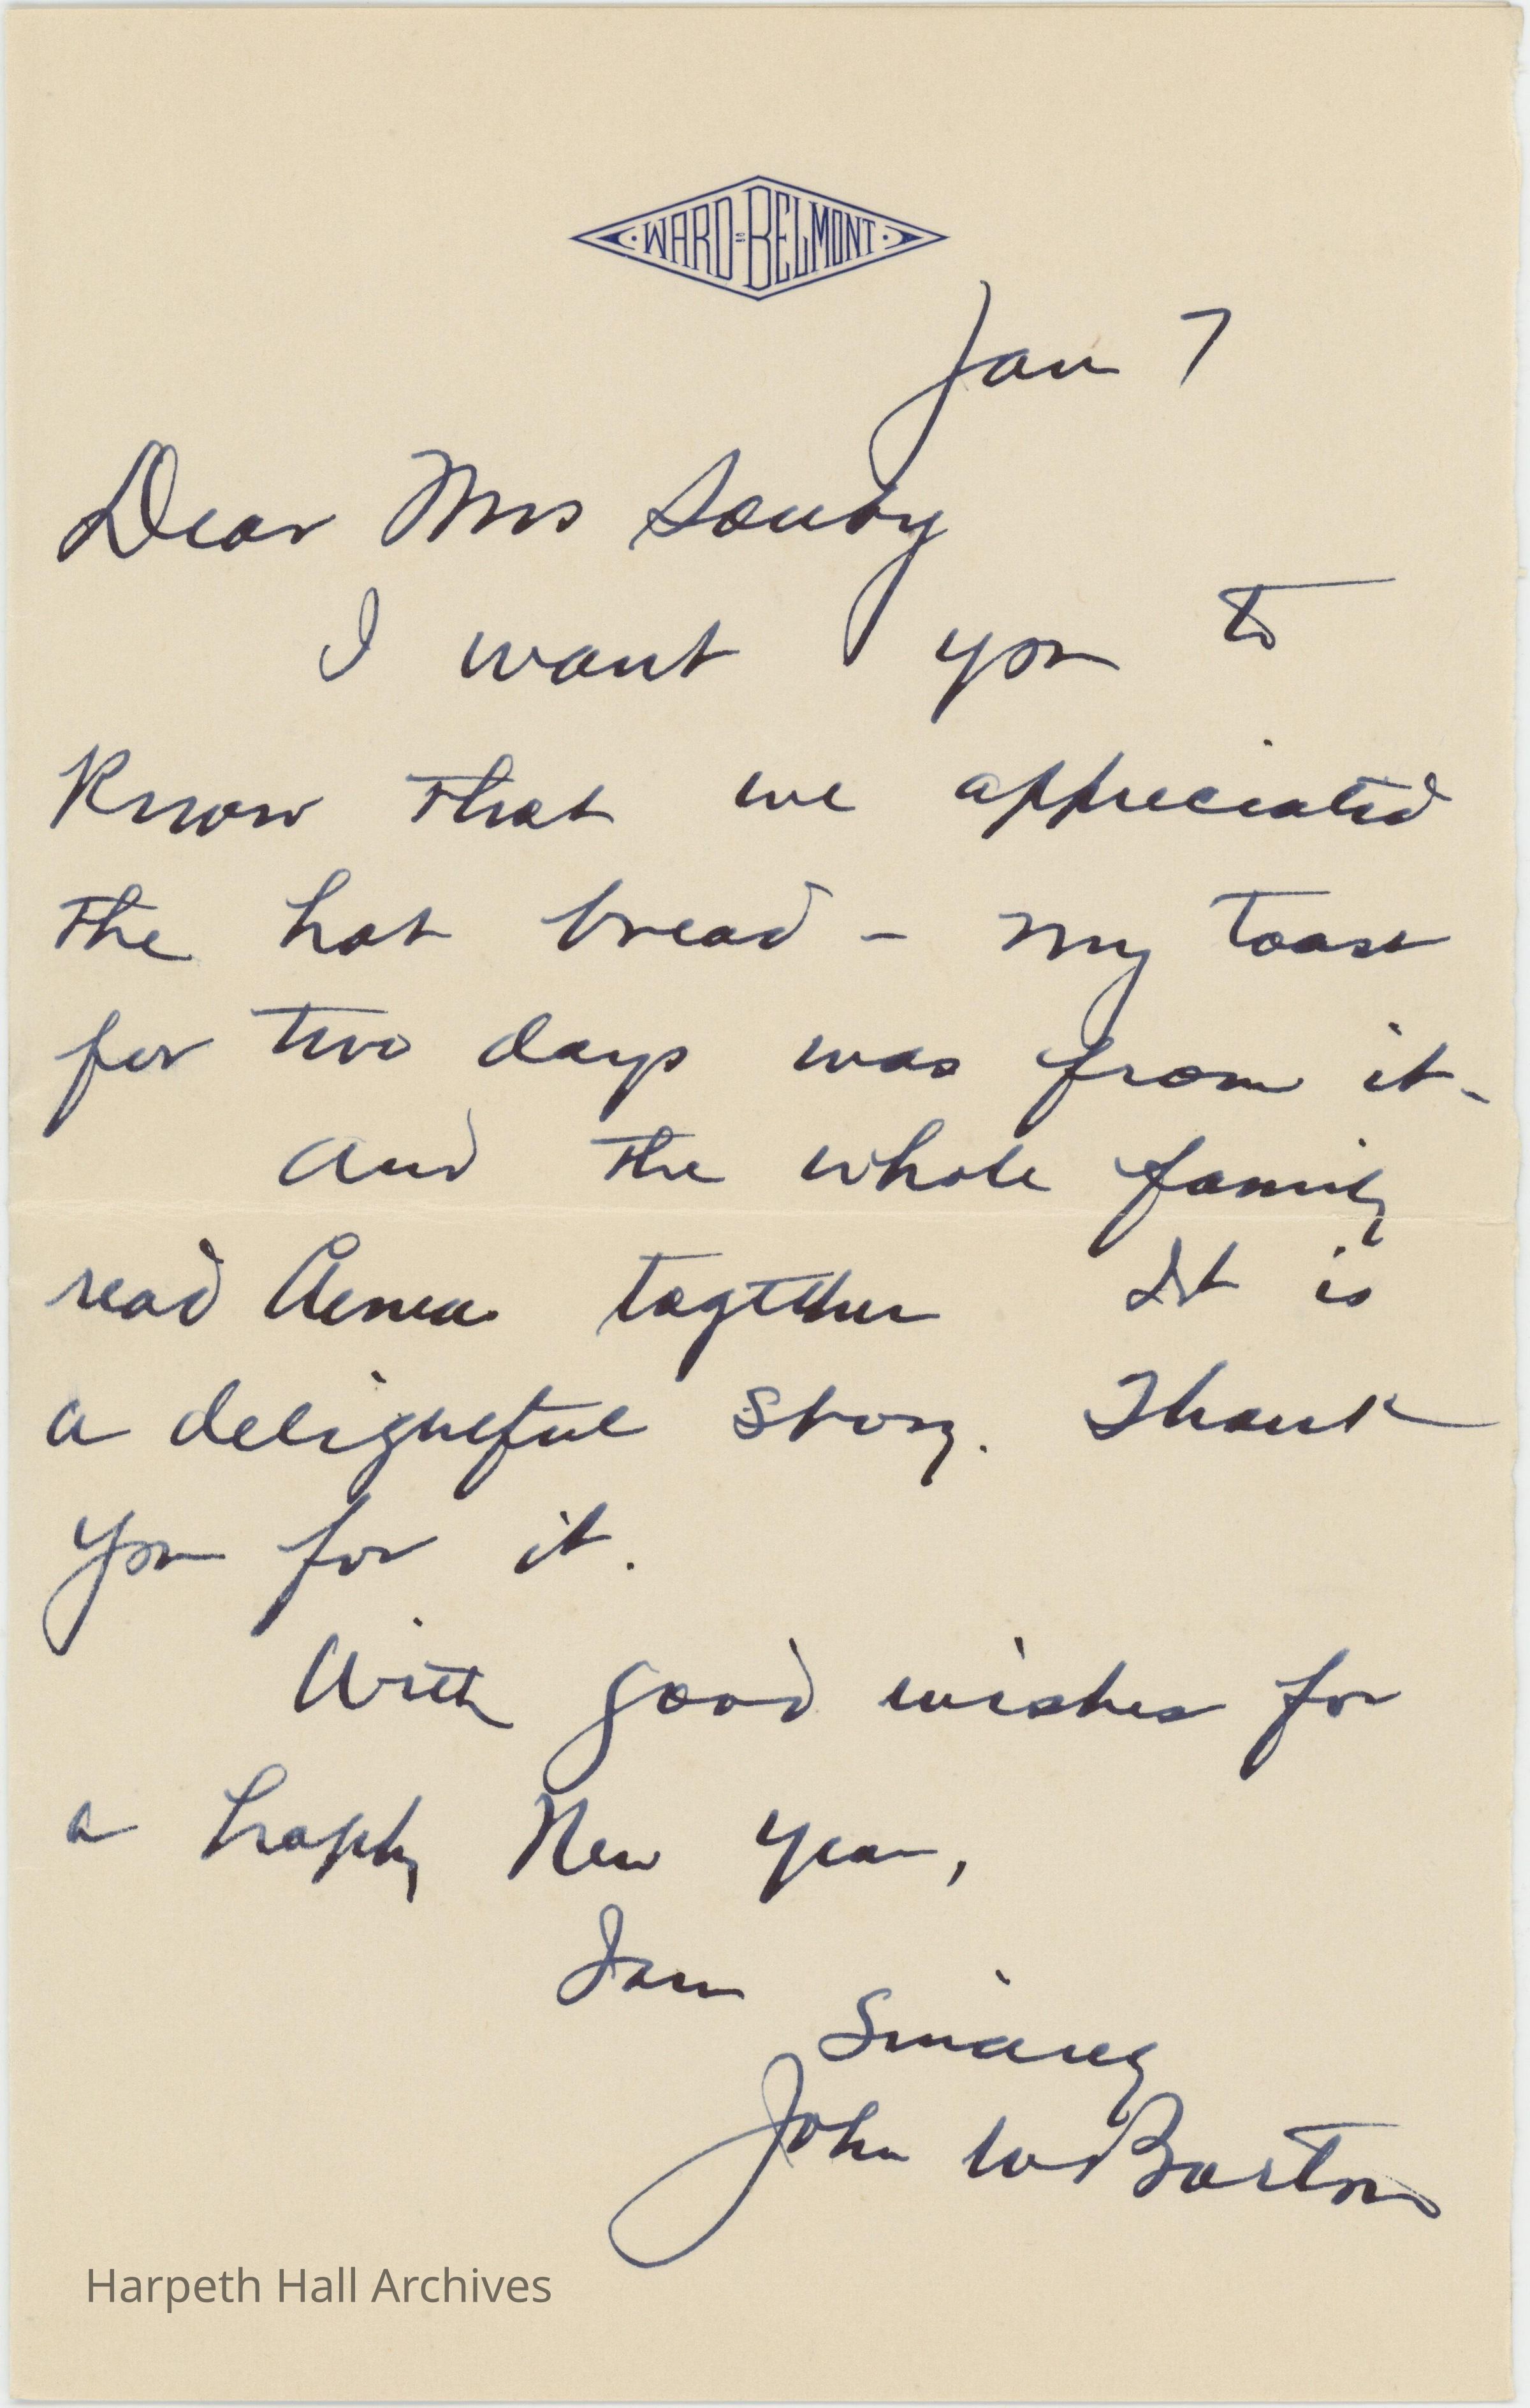 WARD-BELMONT
Jan 7
Dear Mrs Souby
I want you to
Know that we appreciated
the hot bread - my toast
for two days was from it-
and the whole family
read together It is
a delightful story. Thank
you for it.
With good wishes for
a happy New Year,
I am
Sincerely
John W Barton
Harpeth Hall Archives